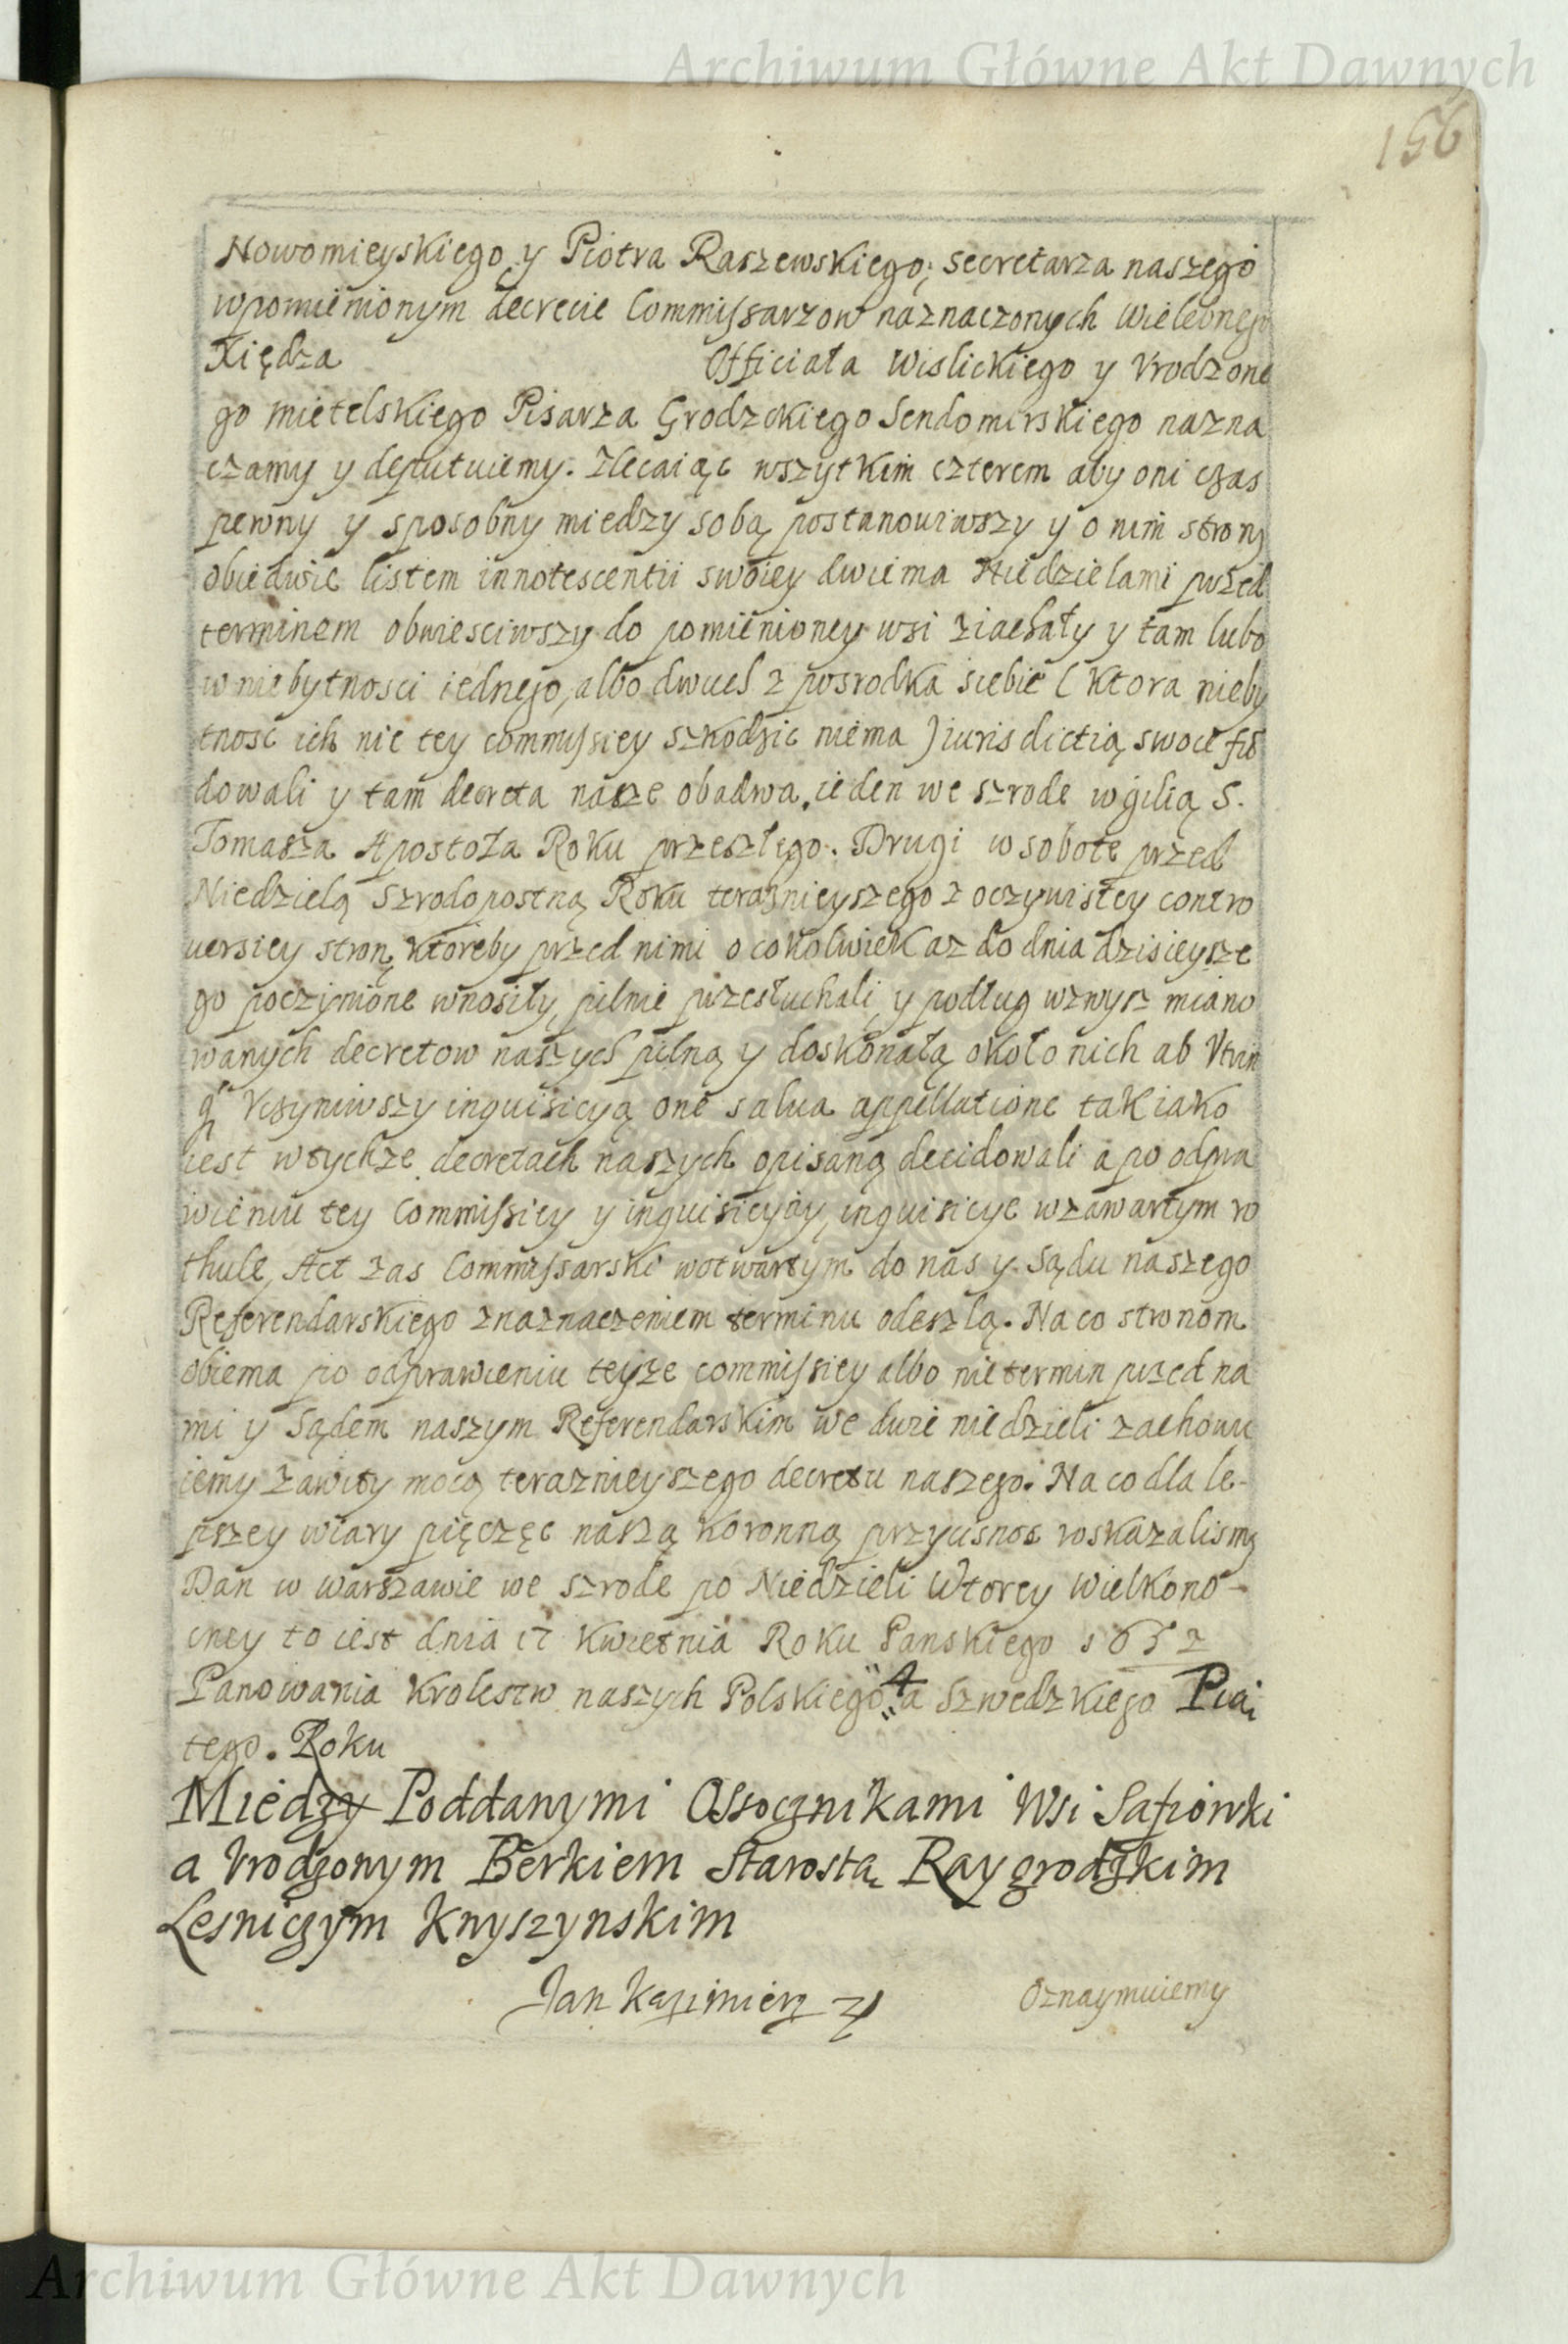 Archiwum Główne Akt Dawnych
156
Nowomieyskiego y Piotra Raszewskiego; secretarza naszego
wpomienionym decrecie Commissarzow naznaczonych Wielebnego
Xiędza Officiała Wislickiego y Vrodzone
go Mietelskiego Pisarza Grodzckiego Sendomirskiego nazna
czamy y deputuiemy. Zlecaiąc wszytkim czterem aby oni czas
pewny y sposobny miedzy sobą postanowiwszy y o nim strony
obiedwie listem innotescentii swoiey dwiema Niedzielami przed
terminem obwiesciwszy do pomienioney wsi ziachały y tam lubo
w niebytnosci iednego, albo dwuch z posrodka siebie (ktora nieby
tnosc ich nic tey commissiey szkodzic niema) iurisdictią swoię fũ
dowali y tam decreta nasze obadwa, ieden we szrode wgilią S.
Tomasza Apostoła Roku przeszłego. Drugi w sobote przed
Niedzielą Szrodopostną Roku teraznieyszego z oczywistey contro
uersiey stron, ktoreby przed nimi o cokolwiek az do dnia dzisieysze
go poczynione wnosiły, pilnie przesłuchali, y podług wzwysz miano
wanych decretow naszych pilną y doskonałą około nich ab Vtrin
q̃ Vczyniwszy inquisicyą one salua appellatione tak iako
iest wtychze decretach naszych opisaną decidowali a po odpra
wieniu tey Commissiey y inquisicyiy, inquisicye wzawartym ro
thule, Act zas Commissarski wotwartym do nas y Sądu naszego
Referendarskiego znaznaczeniem terminu odeszlą. Na co stronom
obiema po odprawieniu teyze commissiey albo nie termin przed na
mi y Sądem naszym Referendarskim we dwie niedzieli zachowu
iemy zawity mocą teraznieyszego decretu naszego. Na co dla le-
pszey wiary pięczęc naszą koronną przycisnoc roskazalismy
Dan w Warszawie we szrode po Niedzieli Wtorey Wielkono-
cney to iest dnia 17 Kwietnia Roku Panskiego 1652
Panowania Krolestw naszych Polskiego 4 a Szwedzkiego Pią
tego. Roku
Miedzy Poddanymi Ossocznikami Wsi Sapiowki
a Vrodzonym Berkiem Starostą Raygrodzkim
Lesniczym Knyszynskim
Jan Kazimierz
Oznaymuiemy
Archiwum Główne Akt Dawnych